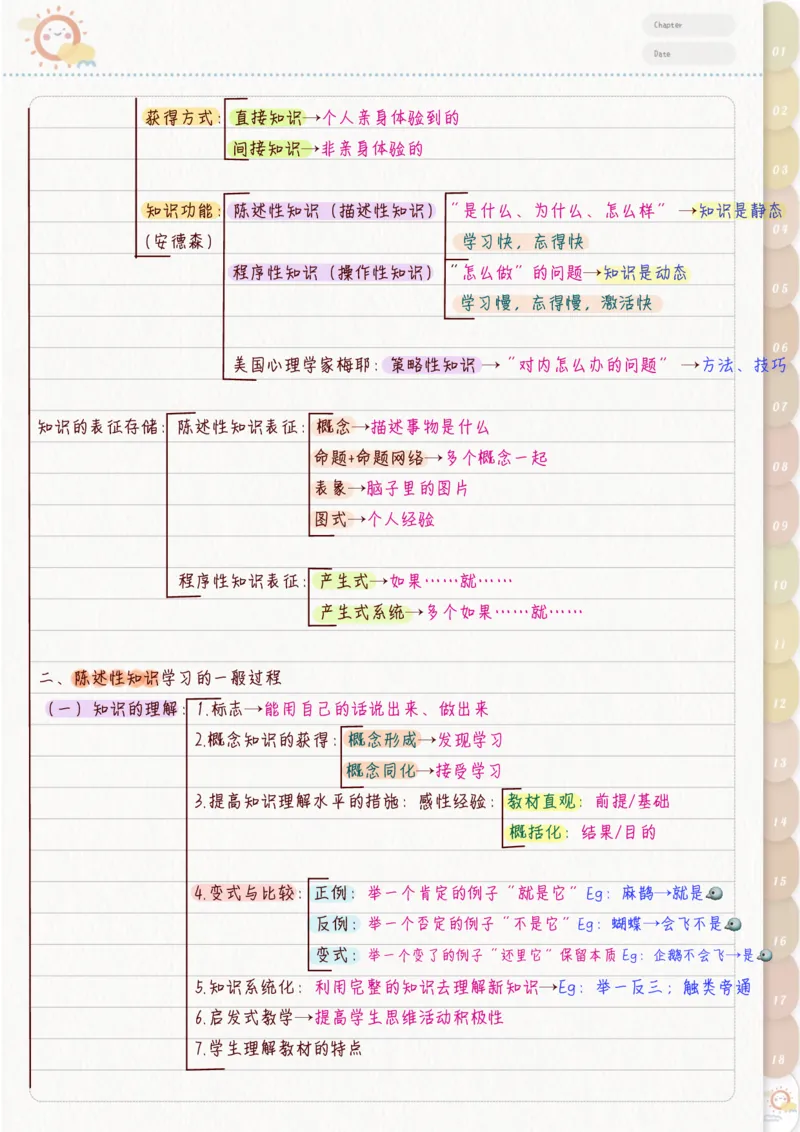 Chapter
Date
01
02
03
04
05
06
07
08
09
10
11
12
13
14
15
16
17
18
获得方式：直接知识→个人亲身体验到的
间接知识→非亲身体验的
知识功能：陈述性知识（描述性知识）“是什么、为什么、怎么样”→知识是静态
（安德森） 学习快，忘得快
程序性知识（操作性知识）“怎么做”的问题→知识是动态
学习慢，忘得慢，激活快
美国心理学家梅耶：策略性知识→“对内怎么办的问题”→方法、技巧
知识的表征存储：陈述性知识表征：概念→描述事物是什么
命题+命题网络→多个概念一起
表象→脑子里的图片
图式→个人经验
程序性知识表征：产生式→如果……就……
产生式系统→多个如果……就……
二、陈述性知识学习的一般过程
（一）知识的理解：1.标志→能用自己的话说出来、做出来
2.概念知识的获得：概念形成→发现学习
概念同化→接受学习
3.提高知识理解水平的措施：感性经验：教材直观：前提/基础
概括化：结果/目的
4.变式与比较：正例：举一个肯定的例子“就是它”Eg：麻鹊→就是
反例：举一个否定的例子“不是它”Eg：蝴蝶→会飞不是
变式：举一个变了的例子“还里它”保留本质 Eg：企鹅不会飞→是
5.知识系统化：利用完整的知识去理解新知识→Eg：举一反三；触类旁通
6.启发式教学→提高学生思维活动积极性
7.学生理解教材的特点